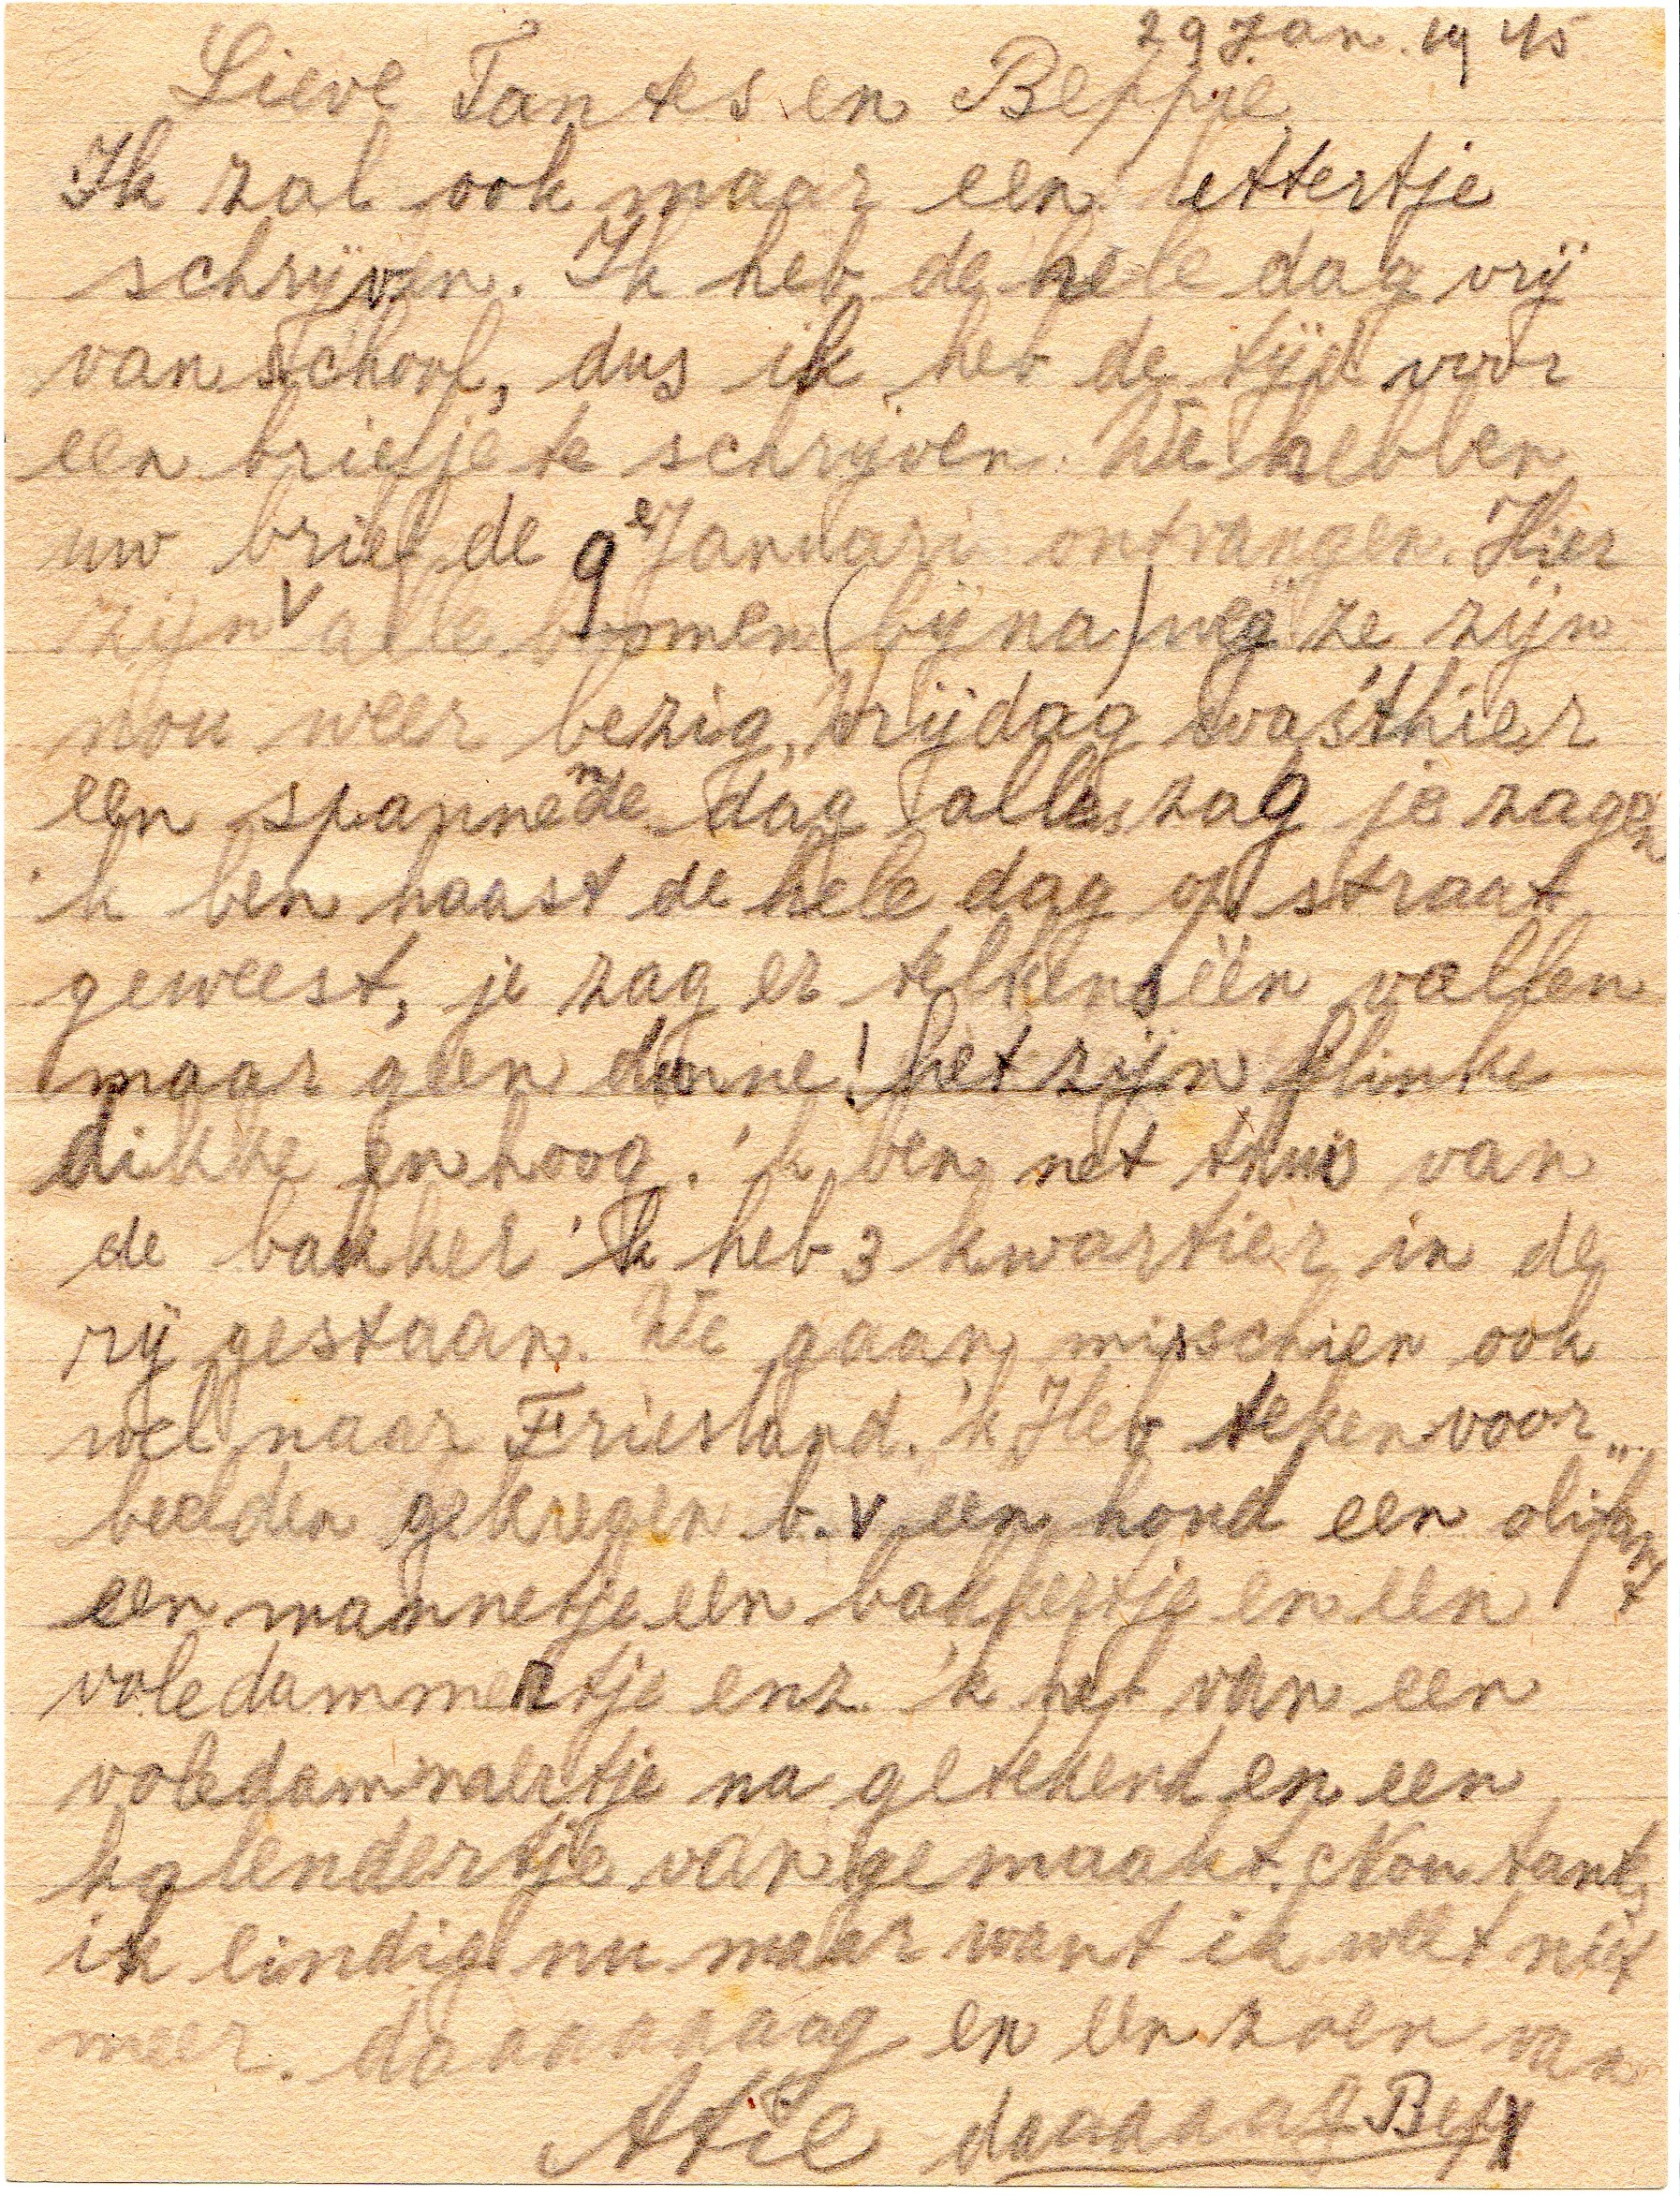 29 Jan. 1945
Lieve Tantes en Beppie
Ik zal ook maar een lettertje
schrijven. Ik heb de hele dag vrij
van school, dus ik heb de tijd voor
een briefje te schrijven. We hebben
uw brief de 9e Januari ontvangen. Hier
zijn v alle bomen (bijna) weg ze zijn
nou weer bezig, Vrijdag was 't hier
een spannende dag alles zag je zagen
'k ben haast de hele dag op straat
geweest, je zag er telkens één vallen
maar geen dunne! het zijn flinke
dikke en hoog. 'k ben net thuis van
de bakker 'k heb 3 kwartier in de
rij gestaan. We gaan misschien ook
wel naar Friesland. 'k Heb teken voor„
beelden gekregen b.v een hond een olifant
een mannetje een bakkertje en een
voledammertje enz. 'k heb van een
voledammertje na getekend en een
kalendertje van gemaakt. Nou tantes
ik eindig nu maar want ik weet niet
meer. daaaaaaag en een zoen van
Atie daaaaag Bep